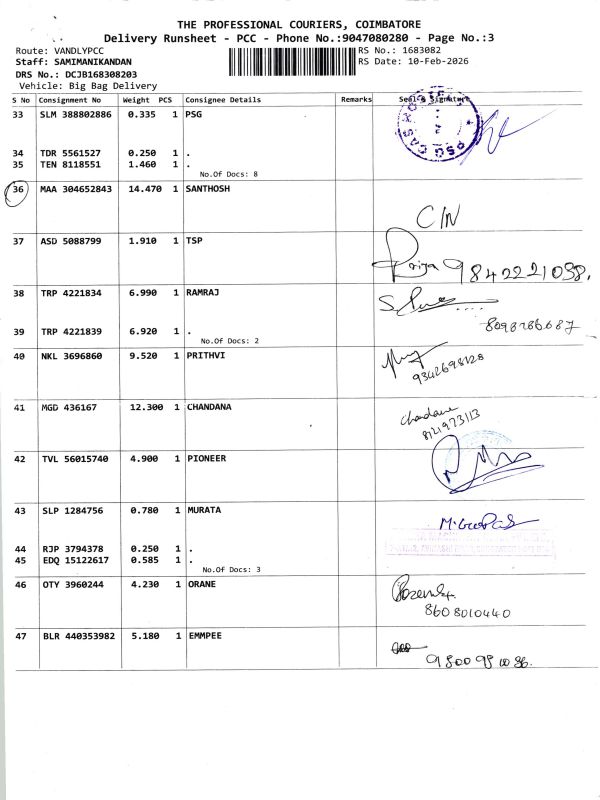 THE PROFESSIONAL COURIERS, COIMBATORE
Delivery Runsheet - PCC - Phone No.:9047080280 - Page No.:3
Route: VANDLYPCC RS No.: 1683082
Staff: SAMIMANIKANDAN RS Date: 10-Feb-2026
DRS No.: DCJB168308203
Vehicle: Big Bag Delivery
S No Consignment No Weight PCS Consignee Details Remarks Seal & Signature
33 SLM 388802886 0.335 1 PSG
34 TDR 5561527 0.250 1 .
35 TEN 8118551 1.460 1 .
No.Of Docs: 8
36 MAA 304652843 14.470 1 SANTHOSH
C/N
37 ASD 5088799 1.910 1 TSP
Priya 9842221038.
38 TRP 4221834 6.990 1 RAMRAJ
39 TRP 4221839 6.920 1 .
No.Of Docs: 2
40 NKL 3696860 9.520 1 PRITHVI
9342698128
41 MGD 436167 12.300 1 CHANDANA
Chandana
8121973113
42 TVL 56015740 4.900 1 PIONEER
43 SLP 1284756 0.780 1 MURATA
44 RJP 3794378 0.250 1 .
45 EDQ 15122617 0.585 1 .
No.Of Docs: 3
46 OTY 3960244 4.230 1 ORANE
8608010440
47 BLR 440353982 5.180 1 EMMPEE